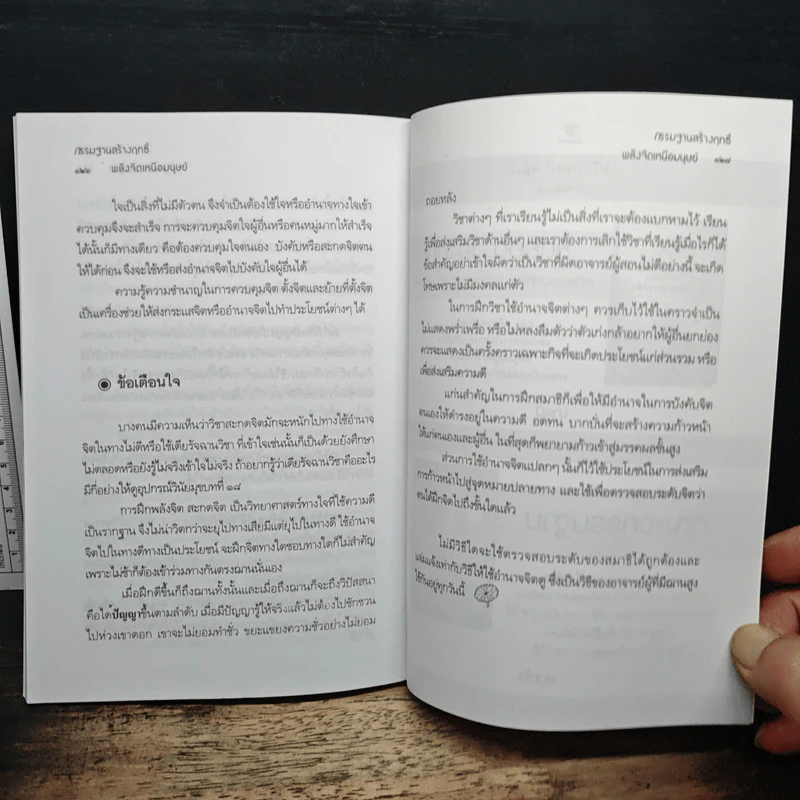 กรรมฐานสร้างฤทธิ์
๑๒๖ พลังจิตเหนือมนุษย์
ใจเป็นสิ่งที่ไม่มีตัวตน จึงจำเป็นต้องใช้ใจหรืออำนาจทางใจเข้า
ควบคุมจึงจะสำเร็จ การจะควบคุมจิตใจผู้อื่นหรือคนหมู่มากให้สำเร็จ
ได้นั้นก็มีทางเดียว คือต้องควบคุมใจตนเอง บังคับหรือสะกดจิตตน
ให้ได้ก่อน จึงจะใช้หรือส่งอำนาจจิตไปบังคับใจผู้อื่นได้
ความรู้ความชำนาญในการควบคุมจิต ตั้งจิตและย้ายที่ตั้งจิต
เป็นเครื่องช่วยให้ส่งกระแสจิตหรืออำนาจจิตไปทำประโยชน์ต่างๆ ได้
ข้อเตือนใจ
บางคนมีความเห็นว่าวิชาสะกดจิตมักจะหนักไปทางใช้อำนาจ
จิตในทางไม่ดีหรือใช้เดียรัจฉานวิชา ที่เข้าใจเช่นนั้นก็เป็นด้วยยังศึกษา
ไม่ตลอดหรือยังรู้ไม่จริงเข้าใจไม่จริง ถ้าอยากรู้ว่าเดียรัจฉานวิชาคืออะไร
มีกี่อย่างให้ดูอุปกรณ์วินัยมุขบทที่ ๑๘
การฝึกพลังจิต สะกดจิต เป็นวิทยาศาสตร์ทางใจที่ใช้ความดี
เป็นรากฐาน จึงไม่น่าวิตกว่าจะยุไปทางเสียมีแต่ยุไปในทางดี ใช้อำนาจ
จิตไปในทางดีทางเป็นประโยชน์ จะฝึกจิตทางใดชอบทางใดก็ไม่สำคัญ
เพราะไม่ช้าก็ต้องเข้าร่วมทางกันตรงฌานนั่นเอง
เมื่อฝึกดีขึ้นก็ถึงฌานทั้งนั้นและเมื่อถึงฌานก็จะถึงวิปัสสนา
คือได้ปัญญาขึ้นตามลำดับ เมื่อมีปัญญารู้ให้จริงแล้วไม่ต้องไปชักชวน
ไปห่วงเขาดอก เขาจะไม่ยอมทำชั่ว ขยะแขยงความชั่วอย่างไม่ยอม
กรรมฐานสร้างฤทธิ์
พลังจิตเหนือมนุษย์ ๑๒๗
ถอยหลัง
วิชาต่างๆ ที่เราเรียนรู้ไม่เป็นสิ่งที่เราจะต้องแบกหามไว้ เรียน
รู้เพื่อส่งเสริมวิชาด้านอื่นๆ และเราต้องการเลิกใช้วิชาที่เรียนรู้เมื่อไรก็ได้
ข้อสำคัญอย่าเข้าใจผิดว่าเป็นวิชาที่ผิดอาจารย์ผู้สอนไม่ดีอย่างนี้ จะเกิด
โทษเพราะไม่มีมงคลแก่ตัว
ในการฝึกวิชาใช้อำนาจจิตต่างๆ ควรเก็บไว้ใช้ในคราวจำเป็น
ไม่แสดงพร่ำเพรื่อ หรือไม่หลงลืมตัวว่าตัวเก่งกล้าอยากให้ผู้อื่นยกย่อง
ควรจะแสดงเป็นครั้งคราวเฉพาะกิจที่จะเกิดประโยชน์แก่ส่วนรวม หรือ
เพื่อส่งเสริมความดี
แก่นสำคัญในการฝึกสมาธิก็เพื่อให้มีอำนาจในการบังคับจิต
ตนเองให้ดำรงอยู่ในความดี อดทน บากบั่นที่จะสร้างความก้าวหน้า
ให้แก่ตนเองและผู้อื่น ในที่สุดก็พยายามก้าวเข้าสู่มรรคผลขั้นสูง
ส่วนการใช้อำนาจจิตแปลกๆ นั้นก็ไว้ใช้ประโยชน์ในการส่งเสริม
การก้าวหน้าไปสู่จุดหมายปลายทาง และใช้เพื่อตรวจสอบระดับจิตว่า
ตนได้ฝึกจิตไปถึงขั้นใดแล้ว
ไม่มีวิธีใดจะใช้ตรวจสอบระดับของสมาธิได้ถูกต้องและ
แจ่มแจ้งเท่ากับวิธีให้ใช้อำนาจจิตดู ซึ่งเป็นวิธีของอาจารย์ผู้ที่มีฌานสูง
ใช้กันอยู่ทุกวันนี้